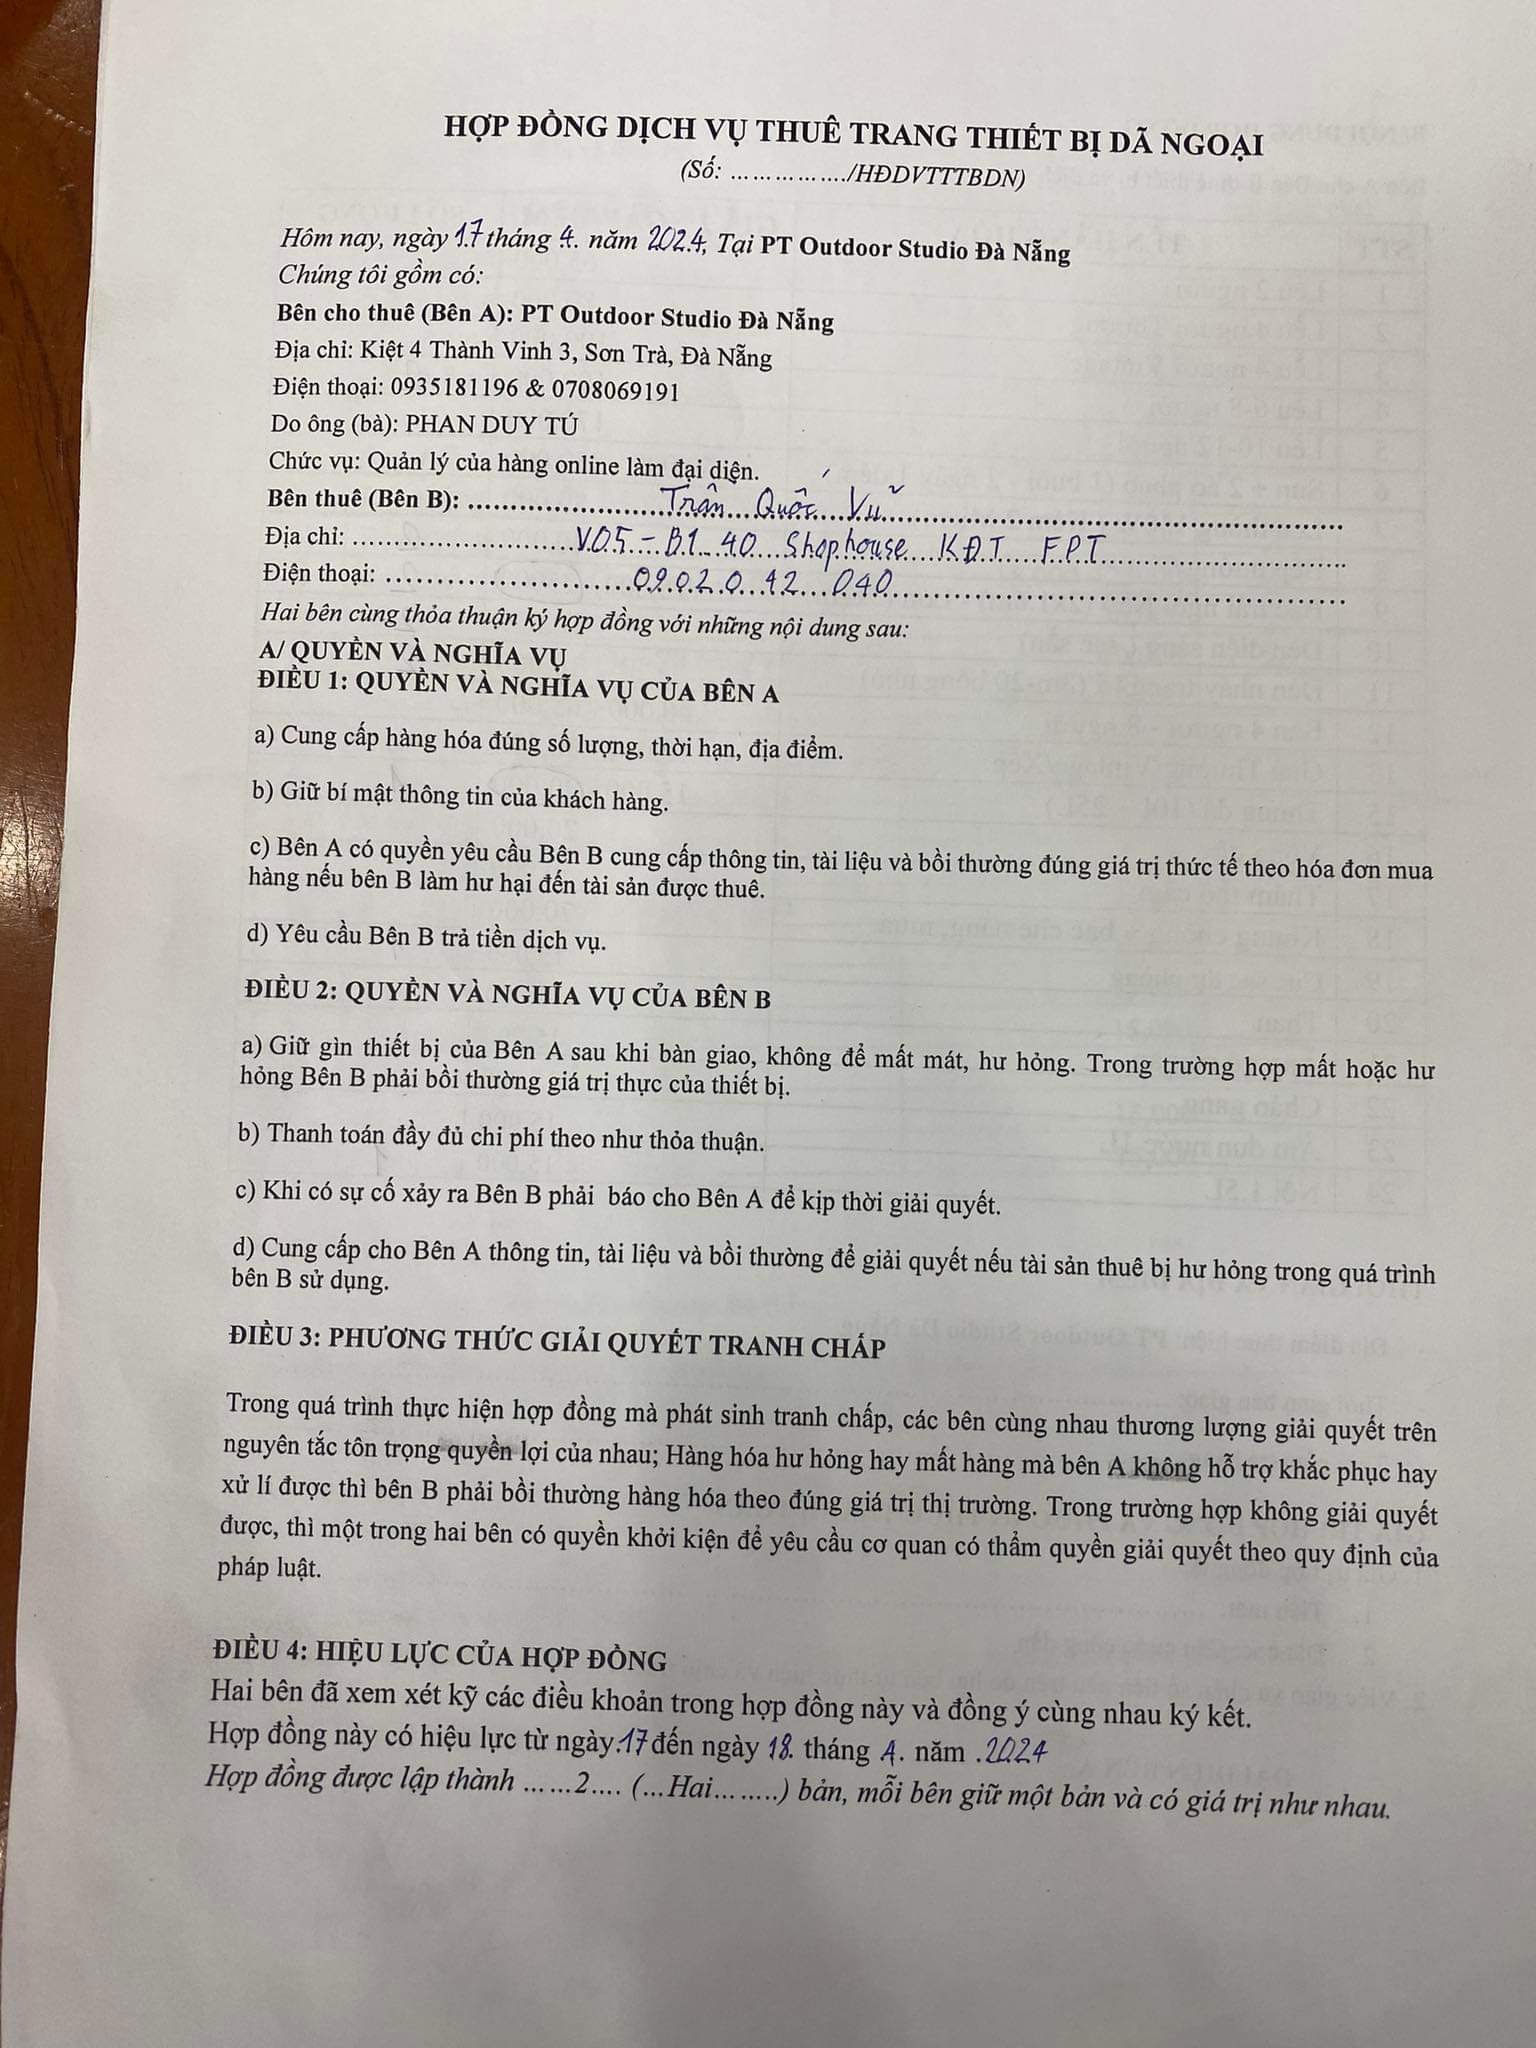 HỢP ĐỒNG DỊCH VỤ THUÊ TRANG THIẾT BỊ DÃ NGOẠI
(Số: ……………./HĐDVTTTBDN)
Hôm nay, ngày 17 tháng 4. năm 2024, Tại PT Outdoor Studio Đà Nẵng
Chúng tôi gồm có:
Bên cho thuê (Bên A): PT Outdoor Studio Đà Nẵng
Địa chỉ: Kiệt 4 Thành Vinh 3, Sơn Trà, Đà Nẵng
Điện thoại: 0935181196 & 0708069191
Do ông (bà): PHAN DUY TÚ
Chức vụ: Quản lý của hàng online làm đại diện.
Bên thuê (Bên B): Trần Quốc Vũ
Địa chỉ: V05 - B1 40 Shophouse KĐT FPT
Điện thoại: 09020 42 040
Hai bên cùng thỏa thuận ký hợp đồng với những nội dung sau:
A/ QUYỀN VÀ NGHĨA VỤ
ĐIỀU 1: QUYỀN VÀ NGHĨA VỤ CỦA BÊN A
a) Cung cấp hàng hóa đúng số lượng, thời hạn, địa điểm.
b) Giữ bí mật thông tin của khách hàng.
c) Bên A có quyền yêu cầu Bên B cung cấp thông tin, tài liệu và bồi thường đúng giá trị thức tế theo hóa đơn mua
hàng nếu bên B làm hư hại đến tài sản được thuê.
d) Yêu cầu Bên B trả tiền dịch vụ.
ĐIỀU 2: QUYỀN VÀ NGHĨA VỤ CỦA BÊN B
a) Giữ gìn thiết bị của Bên A sau khi bàn giao, không để mất mát, hư hỏng. Trong trường hợp mất hoặc hư
hỏng Bên B phải bồi thường giá trị thực của thiết bị.
b) Thanh toán đầy đủ chi phí theo như thỏa thuận.
c) Khi có sự cố xảy ra Bên B phải báo cho Bên A để kịp thời giải quyết.
d) Cung cấp cho Bên A thông tin, tài liệu và bồi thường để giải quyết nếu tài sản thuê bị hư hỏng trong quá trình
bên B sử dụng.
ĐIỀU 3: PHƯƠNG THỨC GIẢI QUYẾT TRANH CHẤP
Trong quá trình thực hiện hợp đồng mà phát sinh tranh chấp, các bên cùng nhau thương lượng giải quyết trên
nguyên tắc tôn trọng quyền lợi của nhau; Hàng hóa hư hỏng hay mất hàng mà bên A không hỗ trợ khắc phục hay
xử lí được thì bên B phải bồi thường hàng hóa theo đúng giá trị thị trường. Trong trường hợp không giải quyết
được, thì một trong hai bên có quyền khởi kiện để yêu cầu cơ quan có thẩm quyền giải quyết theo quy định của
pháp luật.
ĐIỀU 4: HIỆU LỰC CỦA HỢP ĐỒNG
Hai bên đã xem xét kỹ các điều khoản trong hợp đồng này và đồng ý cùng nhau ký kết.
Hợp đồng này có hiệu lực từ ngày 17 đến ngày 18. tháng 4. năm .2024
Hợp đồng được lập thành ……2…. (…Hai……..) bản, mỗi bên giữ một bản và có giá trị như nhau.